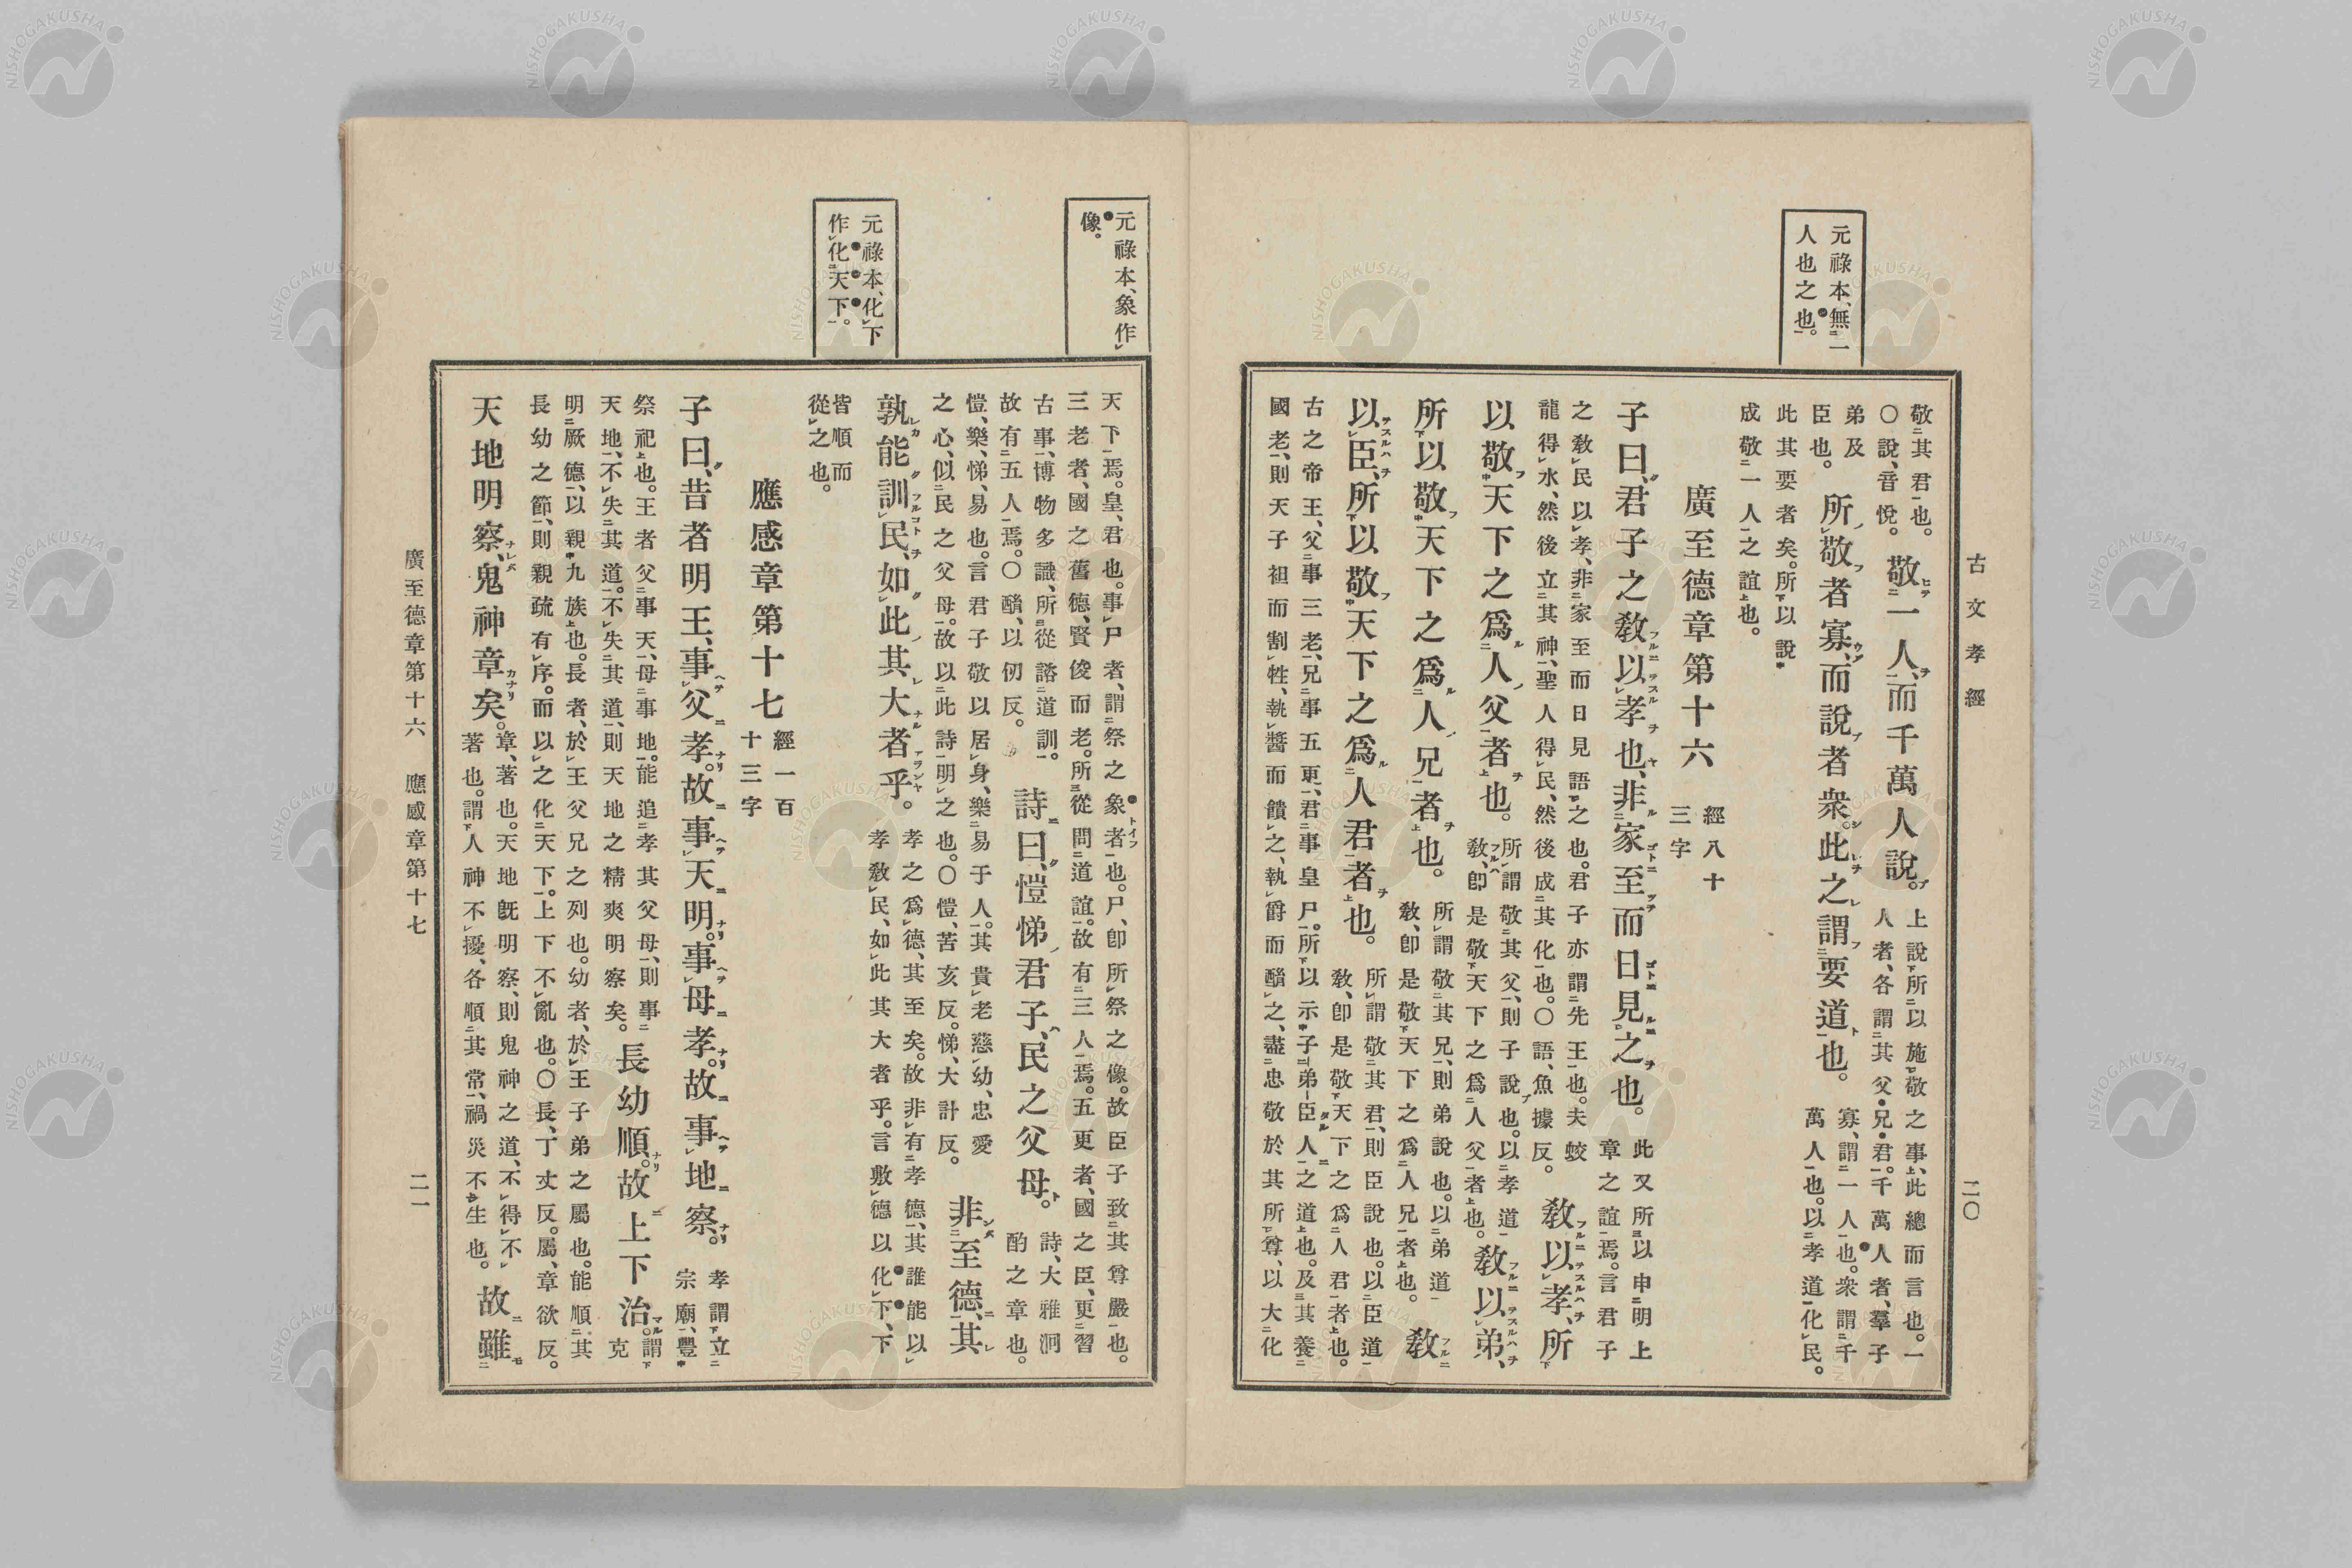 古文孝經
二〇
元祿本、無一
人也之也。
敬其君也。
〇說、音悅。
敬一人、而千萬人說。
上說所以施敬之事、此總而言也。一
人者、各謂其父・兄・君。千萬人者、羣子
弟及
臣也。
所敬者寡、而說者衆。此之謂要道也。
寡、謂一人也。衆謂千
萬人也。以孝道化民。
此其要者矣。所以說
成敬一人之誼也。
廣至德章第十六
經八十
三字
子曰、君子之敎以孝也、非家至而日見之也。
此又所以申明上
章之誼焉。言君子
之敎民以孝、非家至而日見語之也。君子亦謂先王也。夫蛟
龍得水、然後立其神、聖人得民、然後成其化也。〇語、魚據反。
敎以孝、所
以敬天下之爲人父者也。
所謂敬其父、則子說也。以孝道
敎、卽是敬天下之爲人父者也。
敎以弟、
所以敬天下之爲人兄者也。
所謂敬其兄、則弟說也。以弟道
敎、卽是敬天下之爲人兄者也。
敎
以臣、所以敬天下之爲人君者也。
所謂敬其君、則臣說也。以臣道
敎、卽是敬天下之爲人君者也。
古之帝王、父事三老、兄事五更、君事皇尸。所以示子弟臣人之道也。及其養
國老、則天子祖而割牲、執醬而饋之、執爵而酳之、盡忠敬於其所尊、以大化
元祿本、象作
像。
元祿本、化下
作化天下。
天下焉。皇、君也。事尸者、謂祭之象者也。尸、卽所祭之像。故臣子致其尊嚴也。
三老者、國之舊德、賢俊而老。所從問道誼。故有三人焉。五更者、國之臣、更習
古事、博物多識、所從諮道訓。
故有五人焉。〇酳、以仞反。
詩曰、愷悌君子、民之父母。
詩、大雅泂
酌之章也。
愷、樂、悌、易也。言君子敬以居身、樂易于人。其貴老慈幼、忠愛
之心、似民之父母。故以此詩明之也。〇愷、苦亥反。悌、大計反。
非至德、其
孰能訓民、如此其大者乎。
孝之爲德、其至矣。故非有孝德、其誰能以
孝敎民、如此其大者乎。言敷德以化下、下
皆順而
從之也。
應感章第十七
經一百
十三字
子曰、昔者明王、事父孝。故事天明。事母孝。故事地察。
孝謂立
宗廟、豐
祭祀也。王者父事天、母事地。能追孝其父母、則事
天地、不失其道。不失其道、則天地之精爽明察矣。
長幼順。故上下治。
謂克
明厥德、以親九族也。長者、於王父兄之列也。幼者、於王子弟之屬也。能順其
長幼之節、則親疏有序。而以之化天下。上下不亂也。〇長、丁丈反。屬、章欲反。
天地明察、鬼神章矣。
章、著也。天地旣明察、則鬼神之道、不得不
著也。謂人神不擾、各順其常、禍災不生也。
故雖
廣至德章第十六　應感章第十七
二一